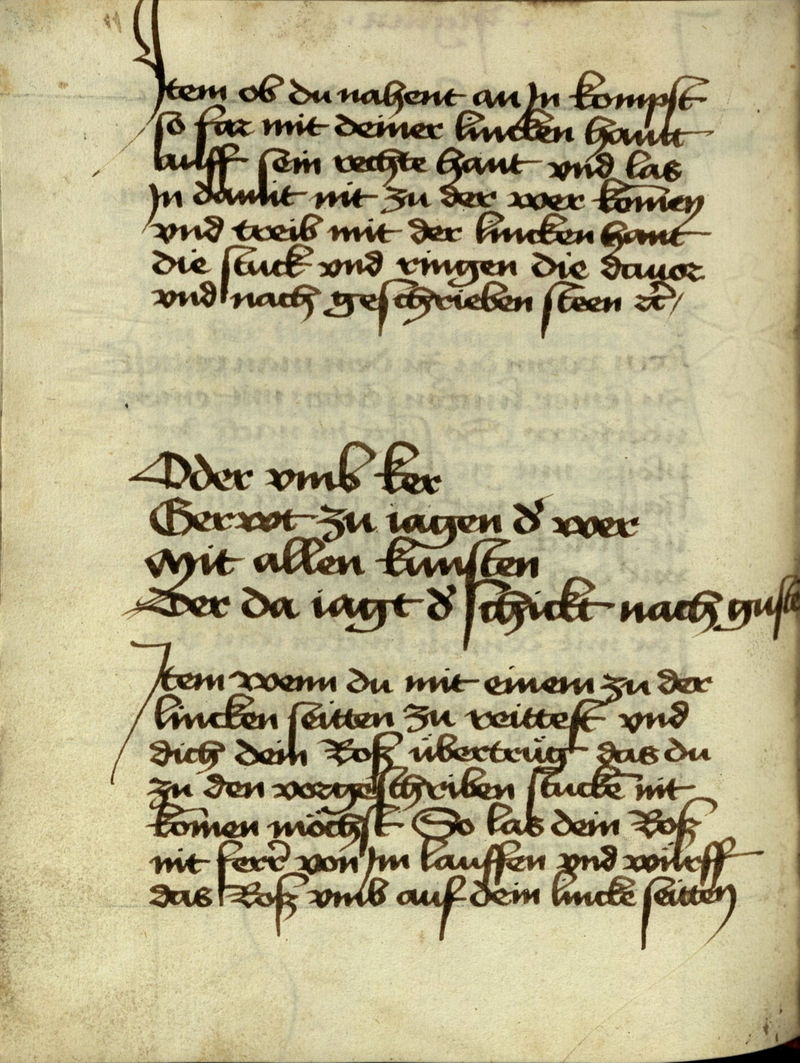 Item ob du nahent an In kompst
so far mit deiner lincken hantt
auff sein rechte hant vnd las
In damit nit zu der wer komen
vnd treib mit der lincken hant
die stuck vnd ringen die dauor
vnd nach geschrieben steen zc/
Oder vmb ker
Gerwt zu iagen d' wer
Mit allen kunsten
Der da iagt d' schickt nach gust
Item wenn du mit einem zu der
lincken seitten zu reittest vnd
dich dein Roß übertrüg das du
zu den vorgeschriben stucke nit
komen möchst So las dein Roß
nit ferr von Im lauffen vnd wirff
das Roß vmb auf dein lincke seitten